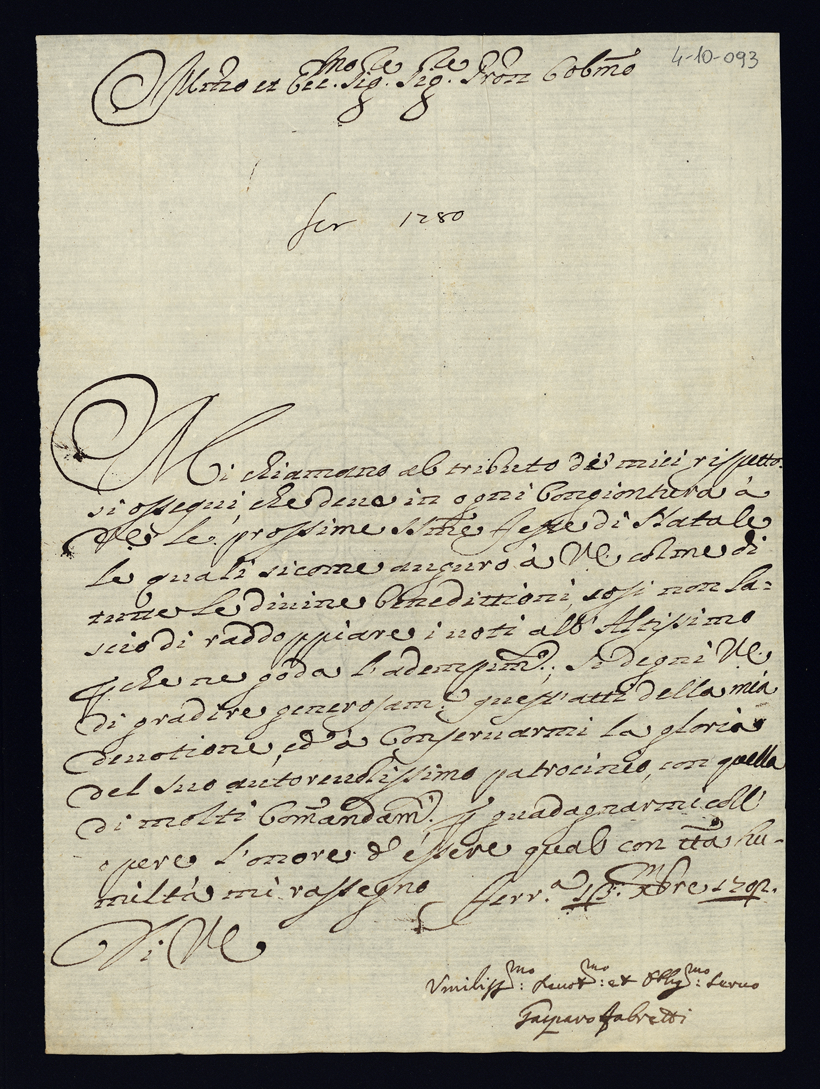 4-10-093
Illmo et Ecc.mo Sig.re Sig.re Pron Colmo
fer 1780
Mi chiamano al tributo de' miei rispetto-
si ossequi, che devo in ogni Congiontura à
VE: le prossime SSme feste di Natale
le quali sicome auguro à VE. colme di
tutte le divine benedittioni, così non la=
scio di raddoppiare i voti all' Altissimo
che ne goda l'adempim.to; si degni VE.
di gradire generosam.te quest'atti della mia
devotione, ed à Conservarmi la gloria
del suo autorevolissimo patrocinio, con quella
di molti Comandam.ti guadagnarmi coll'
opere l'onore d'essere qual con tta hu-
miltà mi rassegno
ferr.a Xbre
Di VE
Vmiliss.mo: deuot.mo: et Obbg.mo: Seruo
Gasparo fabretti